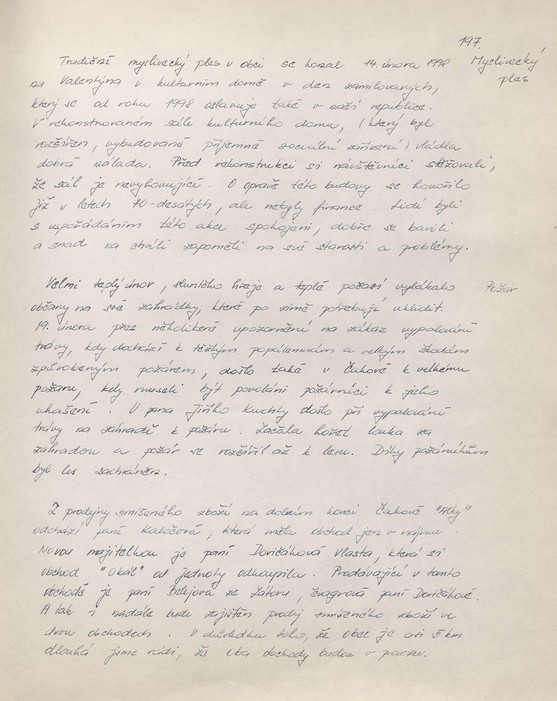 197.
Tradiční myslivecký ples v obci se konal 14. února 1998 Myslivecký ples
na Valentýna v kulturním domě v den zamilovaných,
který se od roku 1998 oslavuje také v naší republice.
V rekonstruovaném sále kulturního domu, (který byl
rozšířen, vybudované příjemné sociální zařízení) vládla
dobrá nálada. Před rekonstrukcí si návštěvníci stěžovali,
že sál je nevyhovující. O opravě této budovy se hovořilo
již v letech 70-desátých, ale nebyly finance. Lidé byli
s uspořádáním této akce spokojeni, dobře se bavili
a snad na chvíli zapoměli na své starosti a problémy.
Velmi teplý únor, sluníčko hřeje a teplé počasí vylákalo Požár
občany na své zahrádky, které po zimě potřebují uklidit.
19. února přes několikeré upozornění na zákaz vypalování
trávy, kdy dochází k těžkým popáleninám a velkým škodám
způsobeným požárem, došlo také v Čakově k velkému
požáru, kdy museli být povoláni požárníci k jeho
uhašení. U pana Jiřího Kuchky došlo při vypalování
trávy na zahradě k požáru. Začala hořet louka za
zahradou a požár se rozšířil až k lesu. Díky požárníkům
byl les zachráněn.
Z prodejny smíšeného zboží na dolním konci Čakové "Alky"
odchází paní Kaločová, která měla obchod jen v nájmu.
Novou majitelkou je paní Doričáková Vlasta, která si
obchod "Okál" od Jednoty odkoupila. Prodávající v tomto
obchodě je paní Belejová ze Zátoru, švagrová paní Doričákové.
A tak i nadále bude zajištěn prodej smíšeného zboží ve
dvou obchodech. V důsledku toho, že obec je asi 5 km
dlouhá jsme rádi, že oba obchody budou v provozu.